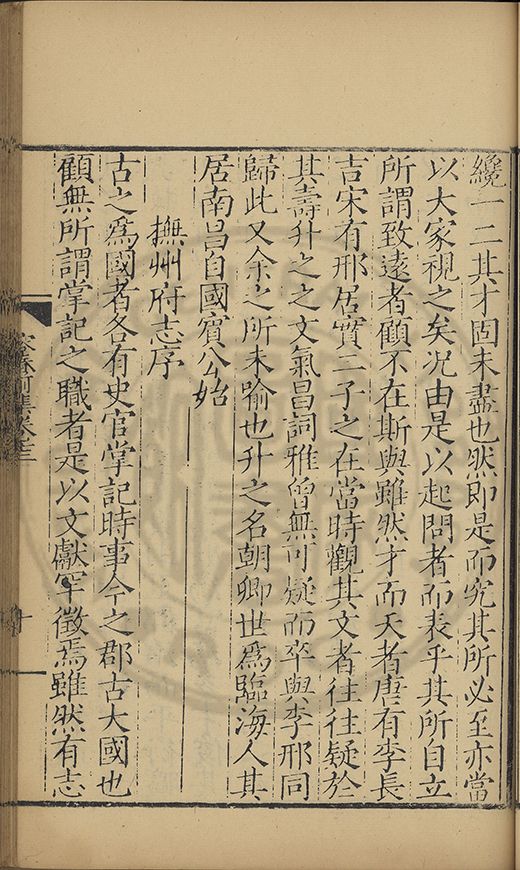 纔一二其才固未盡也然即是而究其所必至亦當
以大家視之矣况由是以起問者而表乎其所自立
所謂致遠者顧不在斯與雖然才而夭者唐有李長
吉宋有邢居實二子之在當時觀其文者往往疑於
其壽升之之文氣昌詞雅曾無可疑而卒與李邢同
歸此又余之所未喻也升之名朝卿世爲臨海人其
居南昌自國賓公始
撫州府志序
古之爲國者各有史官掌記時事今之郡古大國也
顧無所謂掌記之職者是以文獻罕徵焉雖然有志